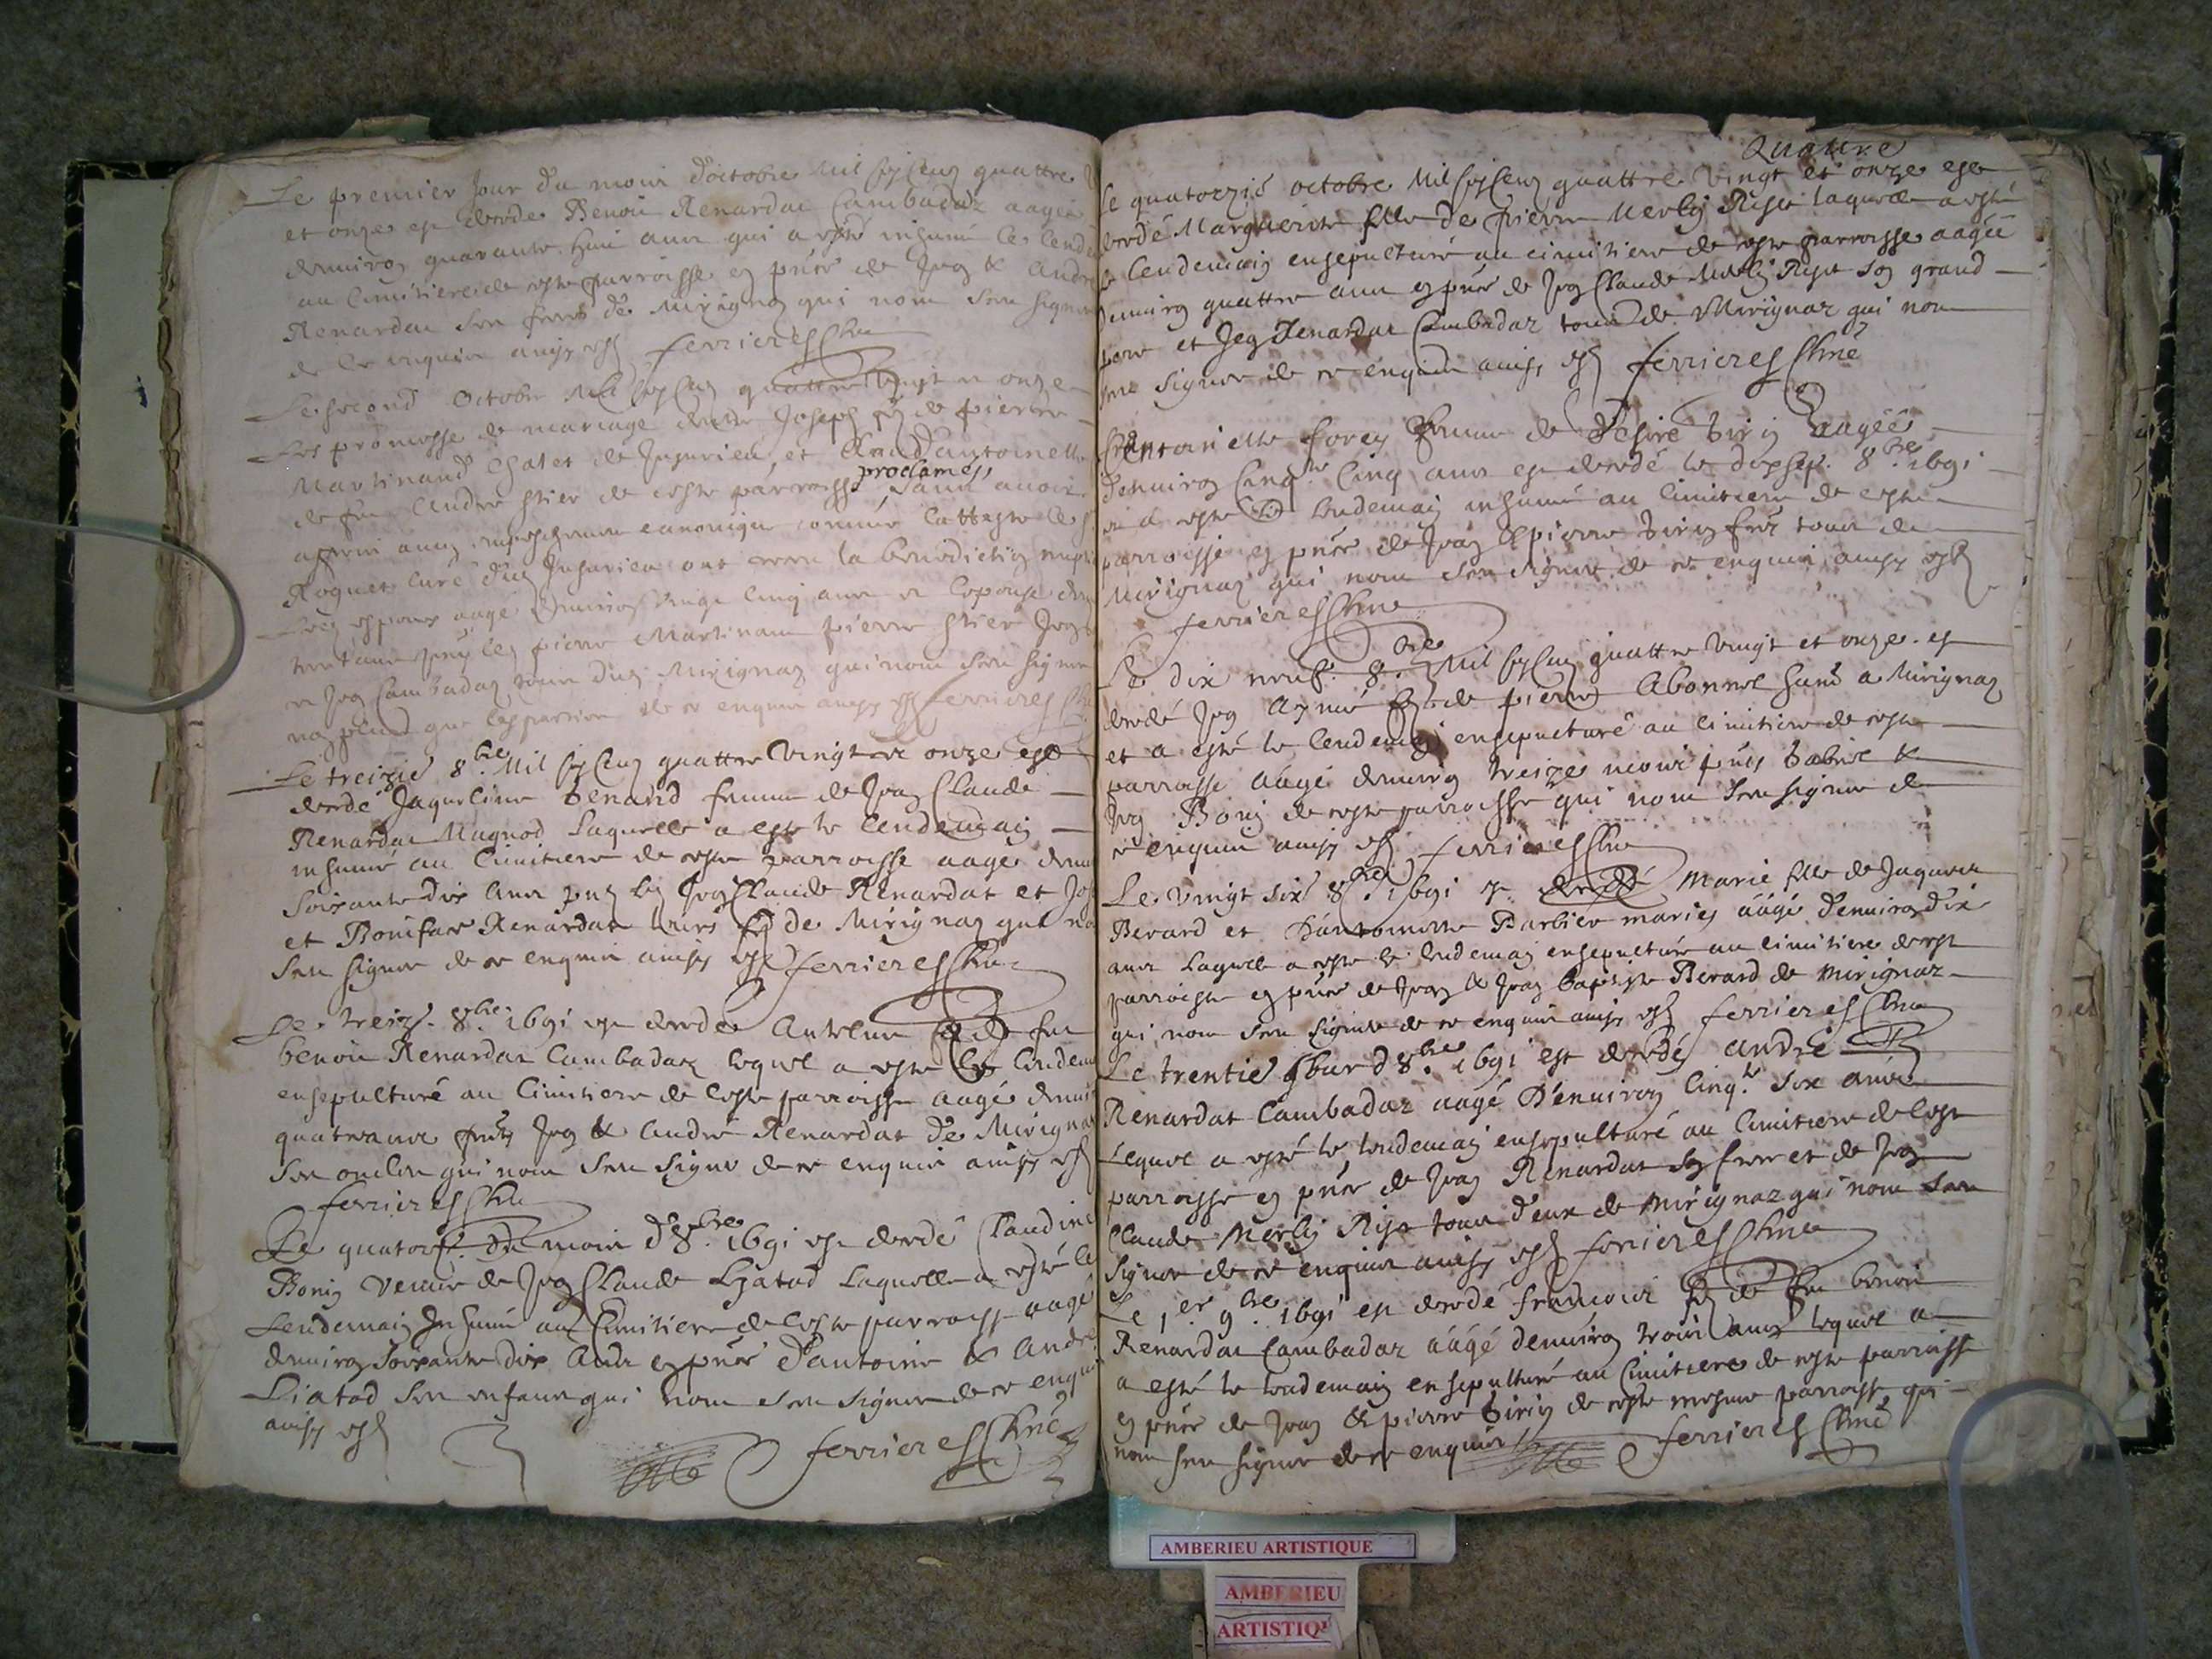 Le premier Jour du mois d'octobre Mil six cens quattre
et onze est decede Benoit Renardat Cambadaz aagé
denviron quarante huit ans qui a esté inhumé le lend
au cimitiere de ceste parroisse en pnce de Jean & André
Renardat ses freres de Mirignaz qui nont sceu signer
de ce enquis ainsy est ferrieres Cure
Le second octobre Mil six cens quattre vingt et onze
Les promesse de mariage dentre Joseph fils de pierre
Martinand Chatet de Jujurieu et Claud'antoinette
proclamés
de feu André stier de ceste parroisse, sans avoir
aucun empeschement canonique comme l'atteste le
Roquet curé dud Jujurieu ont receu la benediction nupt
Led espoux aagé denviron vingt cinq ans et l'espouse
trent'ans pierre Martinand pierre stier Jean
et Jean Cambadaz tous dud Mirignaz qui nont sceu signer
non plus que les parties de ce enquis ainsy est ferrieres
Le treizie 8.bre Mil six cens quattre vingt et onze est
decedé Jaqueline Benand femme de Jean Claude
Renardat Magnod Laquelle a esté le lendemain
inhumé au Cimitiere de ceste parroisse aagé
soixante dix ans Jean Claude Renardat et
et Boniface Renardat leurs fils de Mirignaz qui
sceu signer de ce enquis ainsy est ferrieres Cure
Le treiz. 8.bre 1691 est decede Antelme fils de feu
benoit Renardat Cambadaz lequel a esté le lendem
ensepulturé au Cimitiere de ceste parroisse aagé
quatre ans Jean & André Renardat de Mirignaz
ses oncles qui nont sceu signer de ce enquis ainsy est
ferrieres Cure
Le quatorz. du mois d'8.bre 1691 est decedé Claudine
Bonin veuve de Jean Claude Liatod Laquelle a esté le
Lendemain Inhumé au Cimitiere de ceste parroisse aagé
denviron soixante dix ans en pnce d'antoine & André
Liatod ses enfans qui nont sceu signer de ce enquis
ainsy est
ferrieres Curé
Quatre
Le quatorzie octobre Mil six cens quattre vingt et onze est
decedé Marguerite fille de pierre Merlin Rist laquelle a esté
le lendemain ensepulturé au cimitiere de ceste parroisse aagée
denviron quattre ans en pnce de Jean Claude Merlin Rist son grand
pere et Jean Renardat Cambadaz tous de Mirignaz qui nont
sceu signer de ce enquis ainsy est ferrieres Curé
antoinette forey femme de desire birin aagée
denviron Cinq.te Cinq ans est decedé le dixsep. 8.bre 1691
et a esté le lendemain inhumé au Cimitiere de ceste
parroisse en pnce de Jean & pierre birin frers tous de
Mirignaz qui nont sceu signer de ce enquis ainsy est
ferrieres Cure
Le dix neuf. 8.bre Mil six cens quattre vingt et onze est
decedé Jean Aymé fils de pierre Abonnel a Mirignaz
et a esté le lendemain ensepulturé au Cimitiere de ceste
parroisse aagé denviron treize mois &
Jean Bonin de ceste parroisse qui nont sceu signer de
ce enquis ainsy est ferrieres Cure
Le vingt six 8.bre 1691 est decedé Marie fille de Jaques
Berard et d'antoinette Barbier mariés aagé denviron dix
ans Laquelle a esté le lendemain ensepulturé au cimitiere de ceste
parroisse en pnce de Jean & Jean baptiste Berard de Mirignaz
qui nont sceu signer de ce enquis ainsy est ferrieres Cure
Le trentie Jour d'8.bre 1691 est decedé andré
Renardat Cambadaz aagé d'environ Cinq.te six ans
Lequel a esté le lendemain ensepulturé au Cimitiere de ceste
parroisse en pnce de Jean Renardat son frere et de Jean
Claude Merlin Rist tous deux de Mirignaz qui nont sceu
signer de ce enquis ainsy est ferrieres Cure
Le 1.er 9.bre 1691 est decedé francois fils de feu benoit
Renardat Cambadaz aagé denviron trois ans lequel a
a esté le lendemain ensepulturé au Cimitiere de ceste parroisse
en pnce de Jean & pierre birin de ceste mesme parroisse qui
nont sceu signer de ce enquis ferrieres Curé
AMBERIEU ARTISTIQUE
AMBERIEU
ARTISTIQ